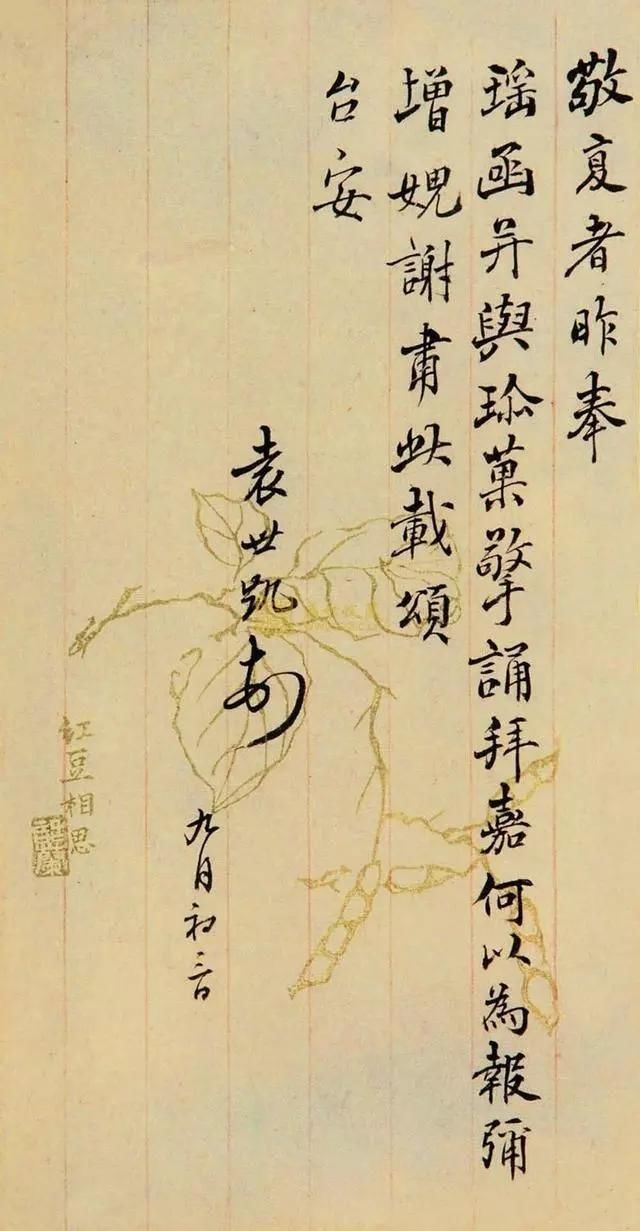 敬复者昨奉
瑶函并與珎菓擎誦拜嘉何以為報彌
增媿謝肅此載頌
台安
袁世凱
九月初三日
紅豆相思